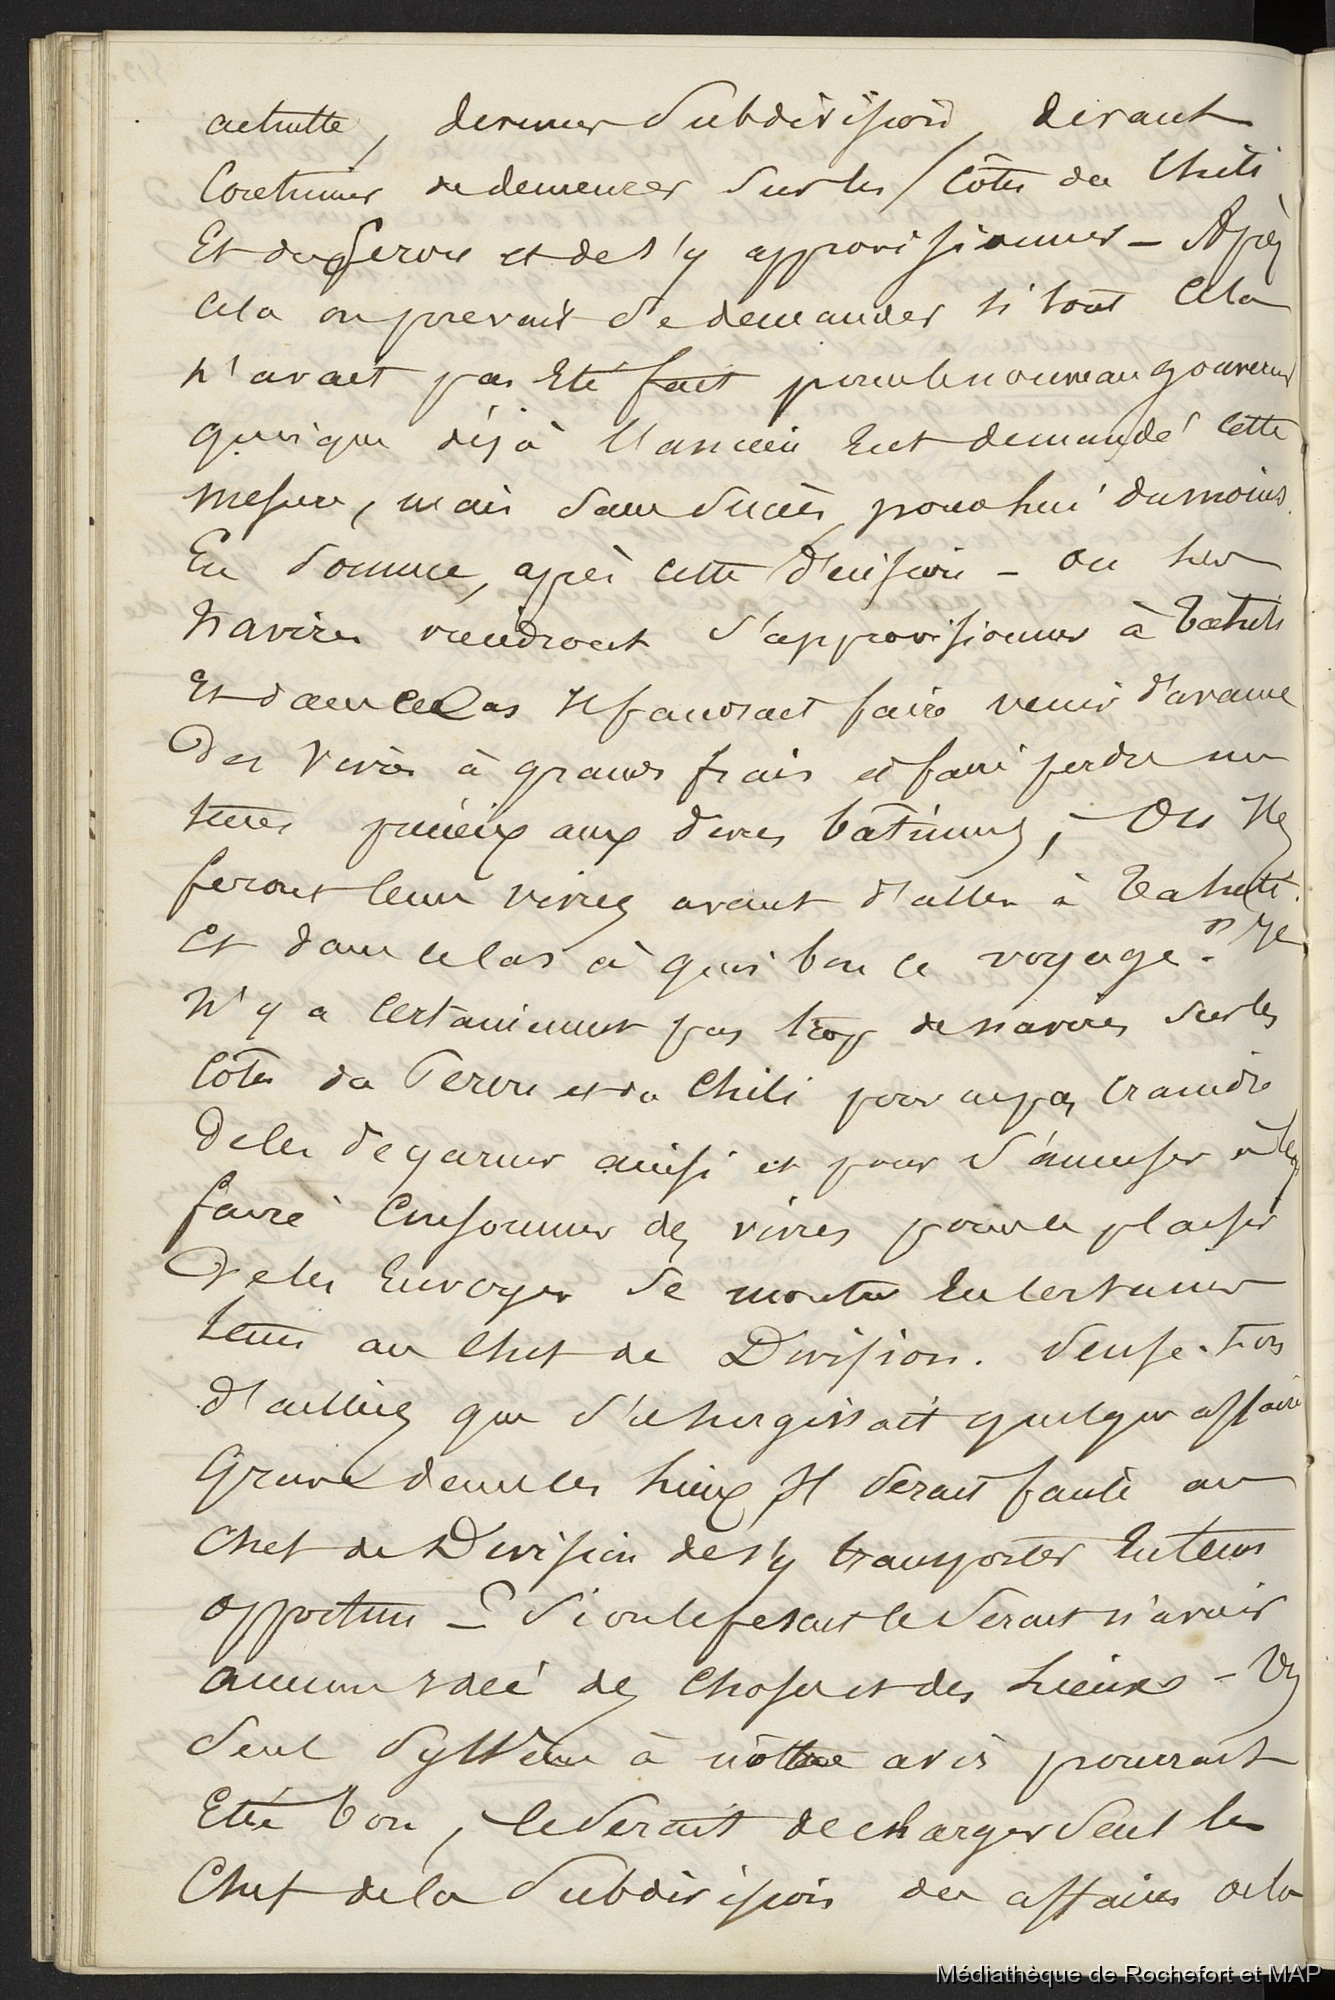 actuelle, devenue Subdivision, devant
Continuer de demeurer sur les Côtes du Chili
Et du Perou et de s'y approvisionner – Après
cela on pouvait se demander si tout Cela
n'avait pas Eté fait pour le nouveau gouverneur
quoique déjà l'ancien Eut demandé cette
mesure, mais sans Succès, pour lui du moins.
En Somme, après cette Décision – ou les
navires viendront s'approvisionner à Tahiti
Et dans ce Cas Il faudrait faire venir d'avance
Des vivres à grands frais et faire perdre un
tems précieux aux divers bâtimens; – Ou Ils
feront leurs vivres avant d'aller à Tahiti.
Et dans ce Cas à quoi bon ce voyage? Il
n'y a Certainement pas trop de navires sur les
Côtes du Perou et du Chili pour ne pas Craindre
De les dégarnir ainsi et pour s'amuser à leur
faire Consommer des vivres pour le plaisir
De les Envoyer se montrer En Certains
tems au Chef de Division. Pense-t-on
d'ailleurs que s'il surgissait quelque affaire
Grave dans les lieux Il serait facile au
Chef de Division de s'y transporter En tems
opportun – Si on le pensait ce serait n'avoir
aucune idée des Choses et des Lieux – Un
Seul Système à nôtre avis pourrait
Etre bon, ce serait de charger Seul le
Chef de la Subdivision des affaires de la
Médiathèque de Rochefort et MAP